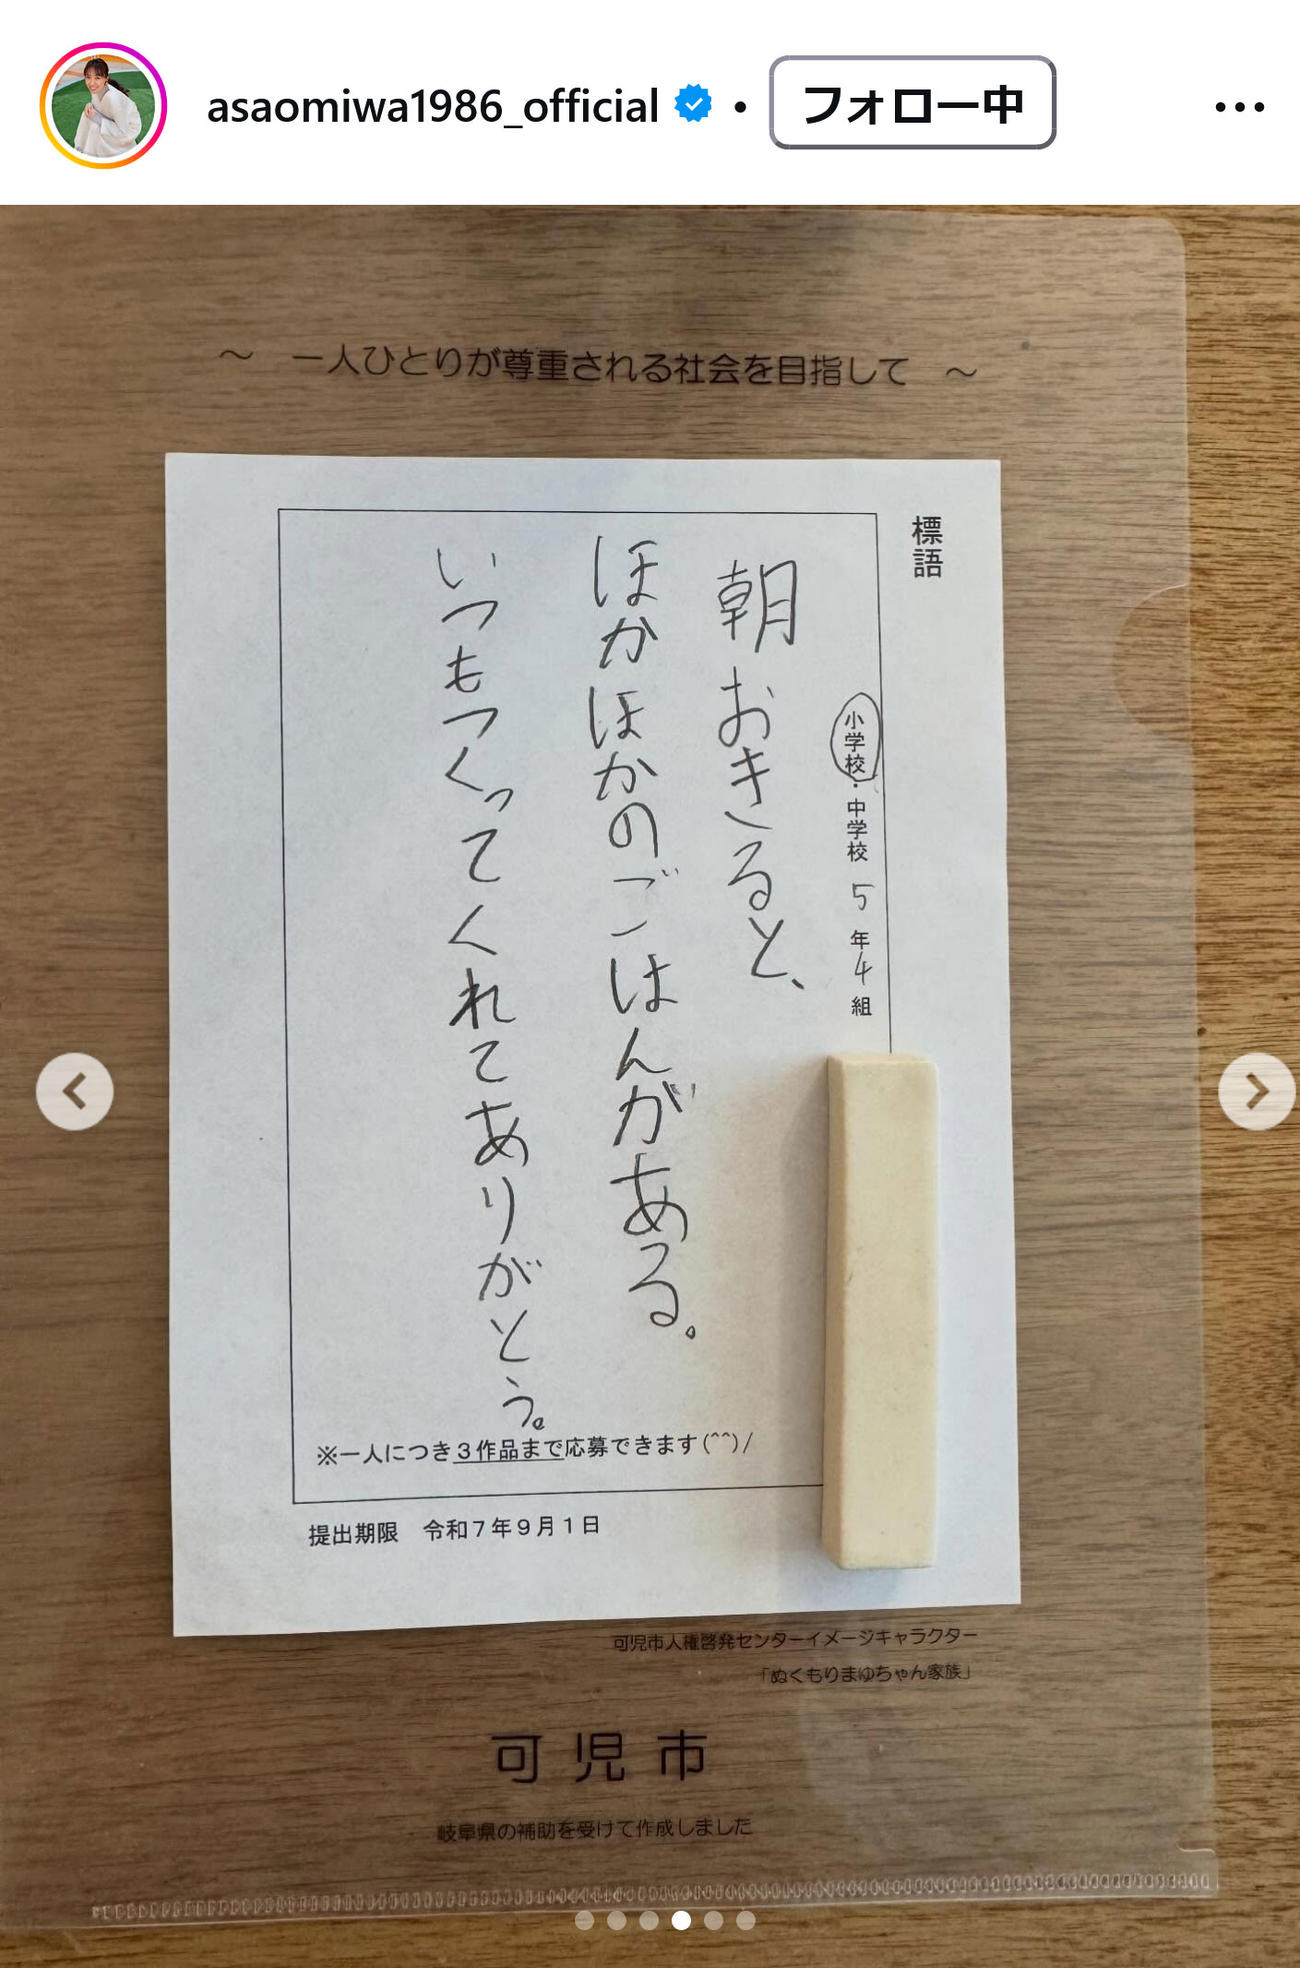 asaomiwa1986_official • フォロー中
〜　一人ひとりが尊重される社会を目指して　〜
標語
小学校・中学校 5年4組
朝おきると、
ほかほかのごはんがある。
いつもつくってくれてありがとう。
※一人につき３作品まで応募できます(^^)/
提出期限　令和７年９月１日
可児市人権啓発センターイメージキャラクター
「ぬくもりまゆちゃん家族」
可児市
岐阜県の補助を受けて作成しました